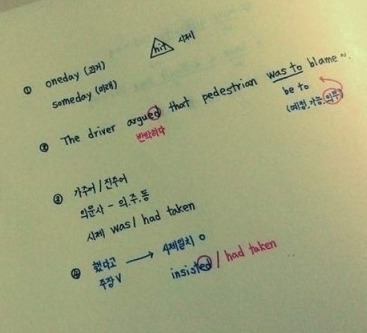 hit 시제
① oneday (과거)
someday (미래)
② The driver argued that pedestrian was to blame~.
반박하다
be to
(예정, 가능, 의무)
③ 가주어/진주어
의문사 - 의.주.동
시제 was / had taken
④ 했다고 → 시제일치 o
주장 V
insisted / had taken